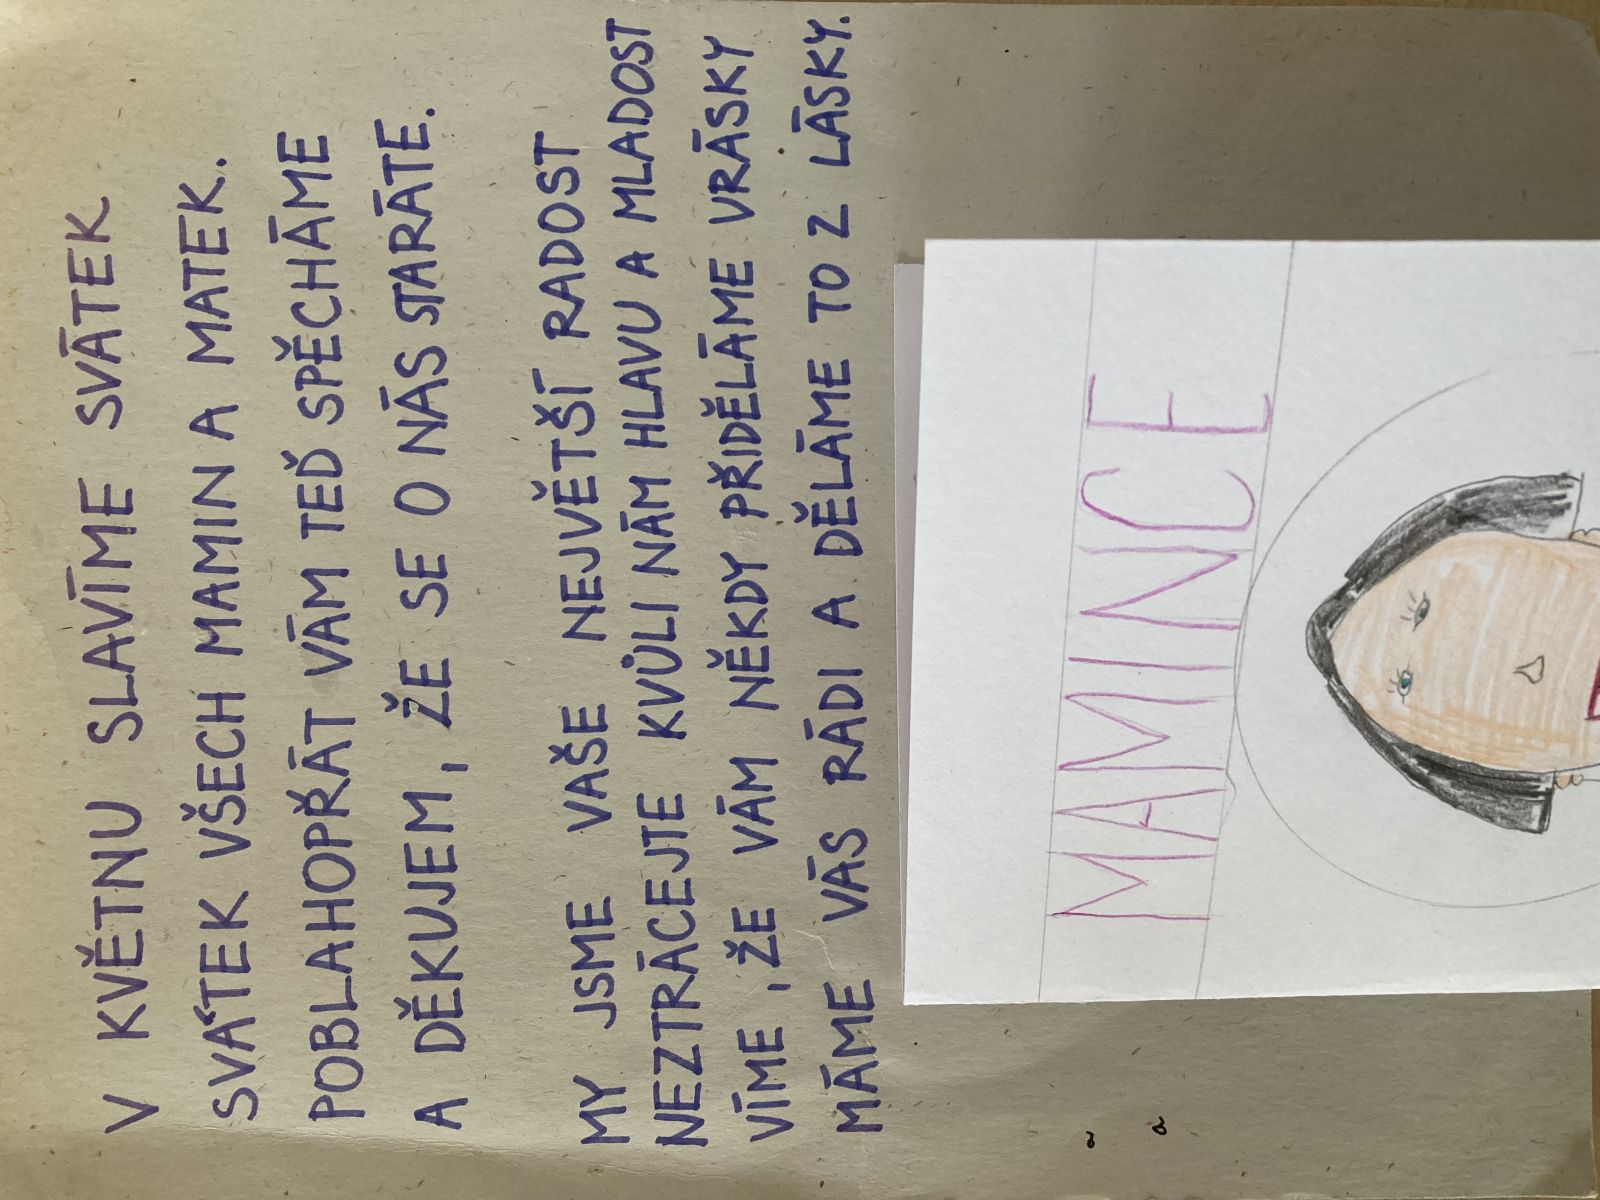 V KVĚTNU SLAVÍME SVÁTEK
SVÁTEK VŠECH MAMIN A MATEK.
POBLAHOPŘÁT VÁM TEĎ SPĚCHÁME
A DĚKUJEM, ŽE SE O NÁS STARÁTE.
MY JSME VAŠE NEJVĚTŠÍ RADOST
NEZTRÁCEJTE KVŮLI NÁM HLAVU A MLADOST
VÍME, ŽE VÁM NĚKDY PŘIDĚLÁME VRÁSKY
MÁME VÁS RÁDI A DĚLÁME TO Z LÁSKY.
MAMINCE